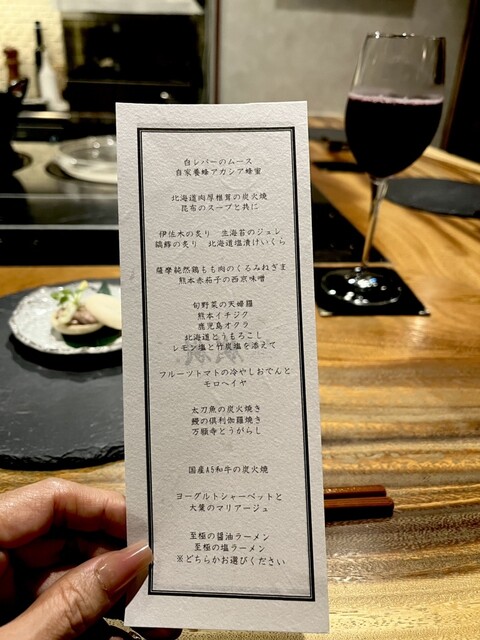 白レバーのムース
自家養蜂アカシア蜂蜜
北海道肉厚椎茸の炭火焼
昆布のスープと共に
伊佐木の炙り 生海苔のジュレ
縞鯵の炙り 北海道塩漬けいくら
薩摩純然鶏もも肉のくるみねぎま
熊本赤茄子の西京味噌
旬野菜の天婦羅
熊本イチジク
鹿児島オクラ
北海道とうもろこし
レモン塩と竹炭塩を添えて
フルーツトマトの冷やしおでんと
モロヘイヤ
太刀魚の炭火焼き
鰻の倶利伽羅焼き
万願寺とうがらし
国産A5和牛の炭火焼
ヨーグルトシャーベットと
大葉のマリアージュ
至極の醤油ラーメン
至極の塩ラーメン
※どちらかお選びください